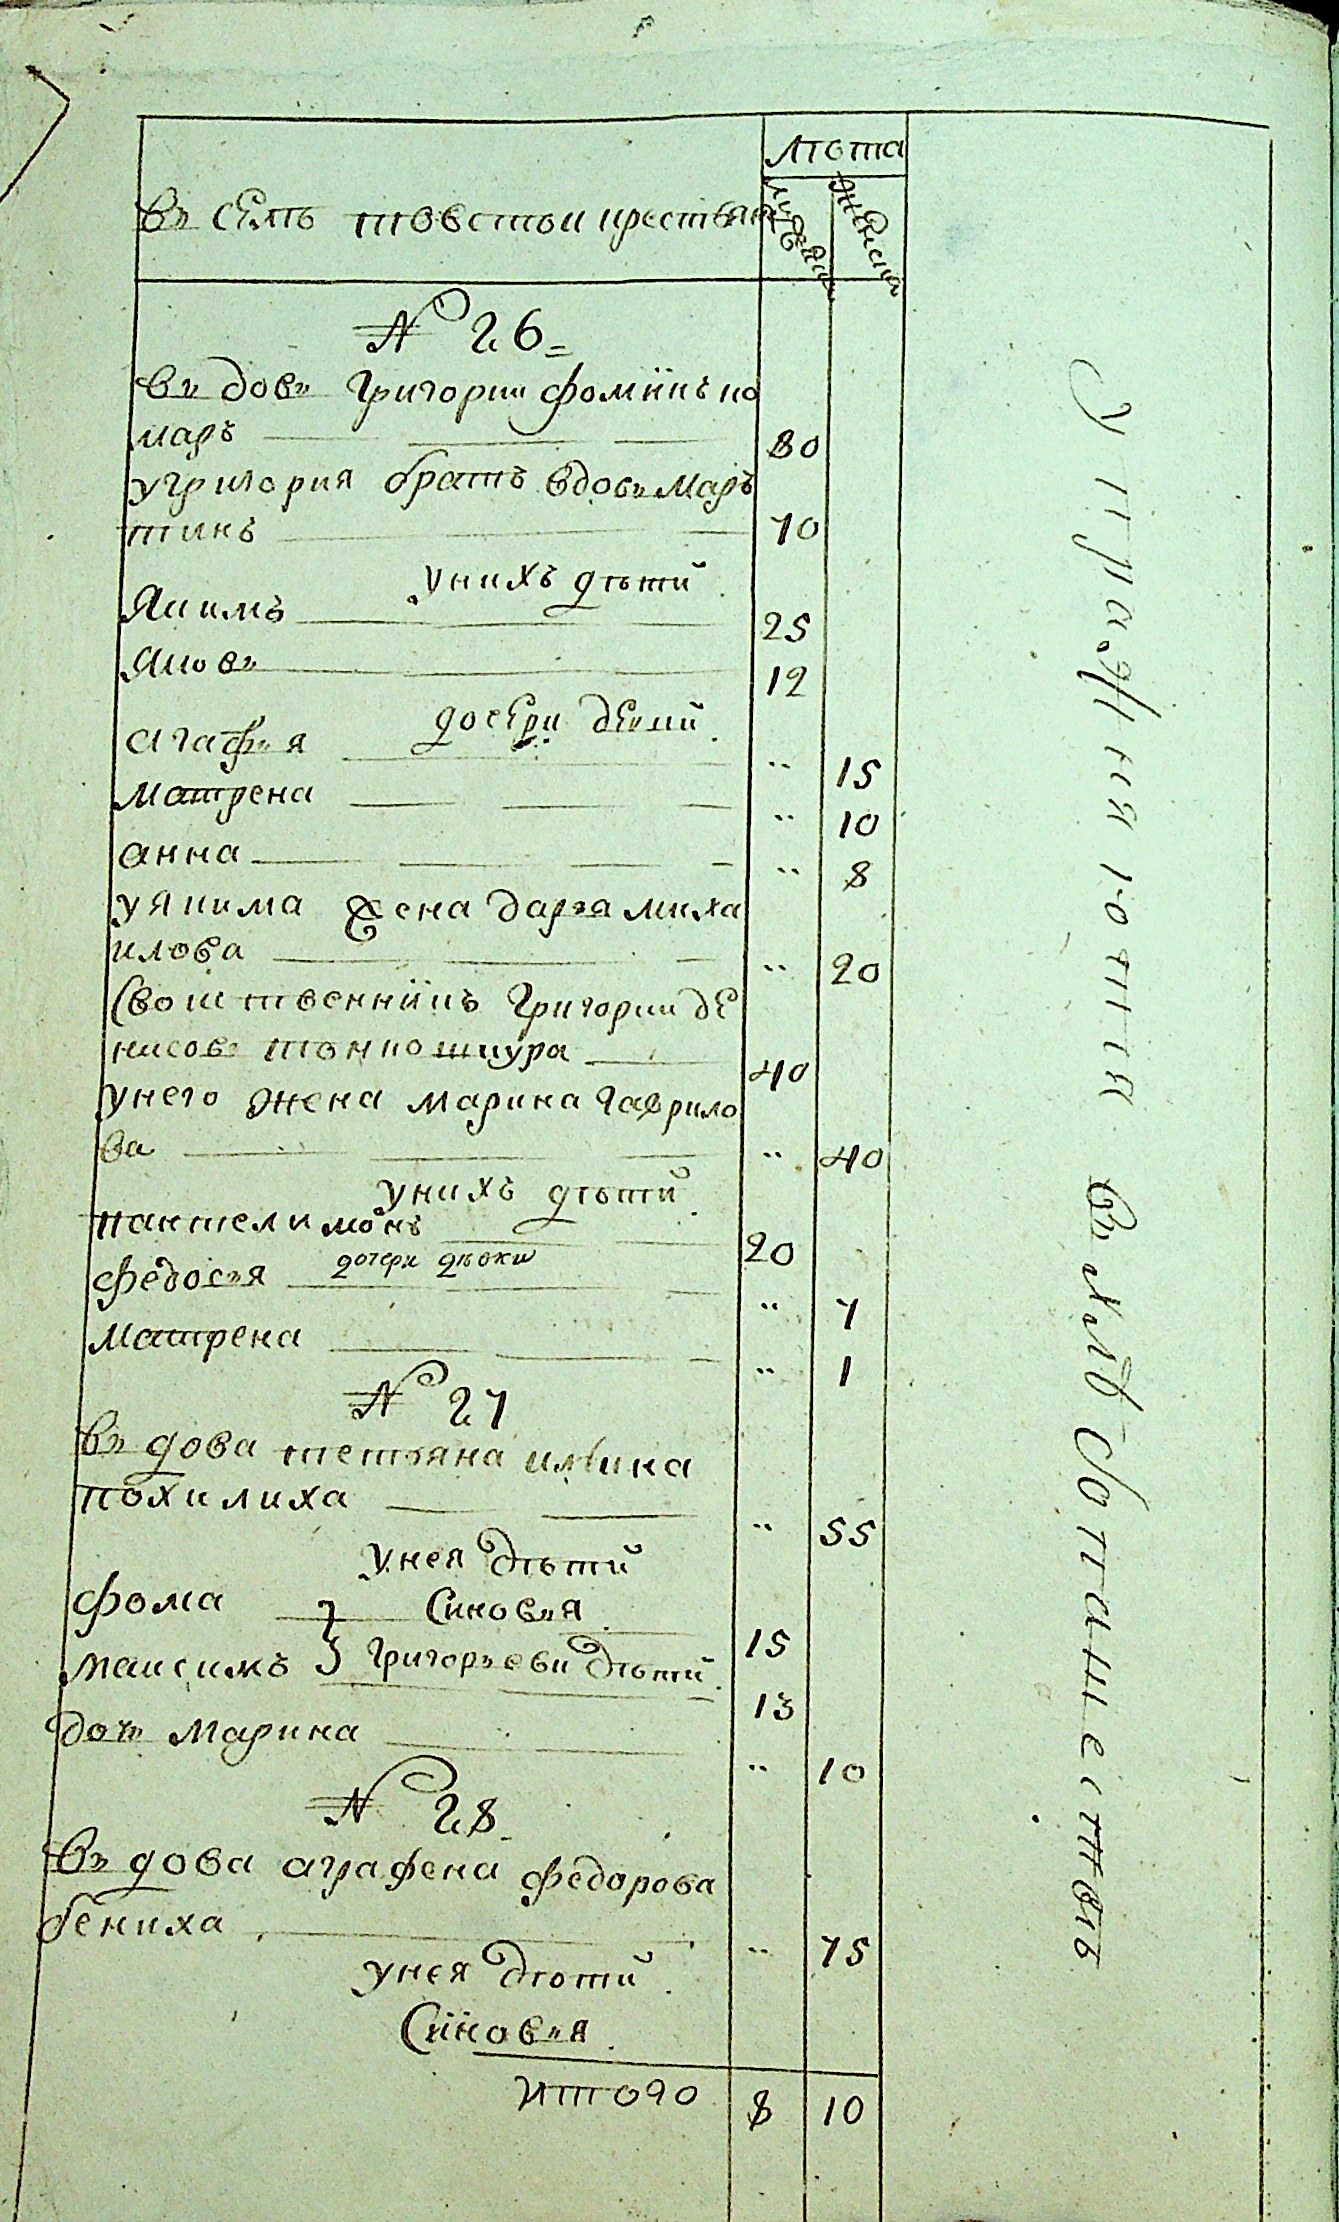 лѣта
въ селѣ товстои крестьянъ
мужеска
женска
№ 26
въдовъ Григории Фоминъ ко
маръ 80
у Григория братъ вдовъ Мар
тинъ 70
у нихъ дѣтй
Якимъ 25
Яковъ 12
дочери девки
агафья 15
матрена 10
анна 8
у якима жена дарья миха
илова 20
Свойственникъ Григории де
нисовъ тонкошкура 40
у него жена марина Гаврило
ва 40
у нихъ дѣтй
пантелимонъ 20
дочери дѣвки
федосья 7
матрена 1
№ 27
въдова тетяна илина
похилиха 55
у нея дѣтй
Синовья
фома 15
максимъ Григорьеви дѣти 13
дочь марина 10
№ 28
въдова аграфена федорова
бениха 75
у нея дѣтй
Синовья
Итого 8 10